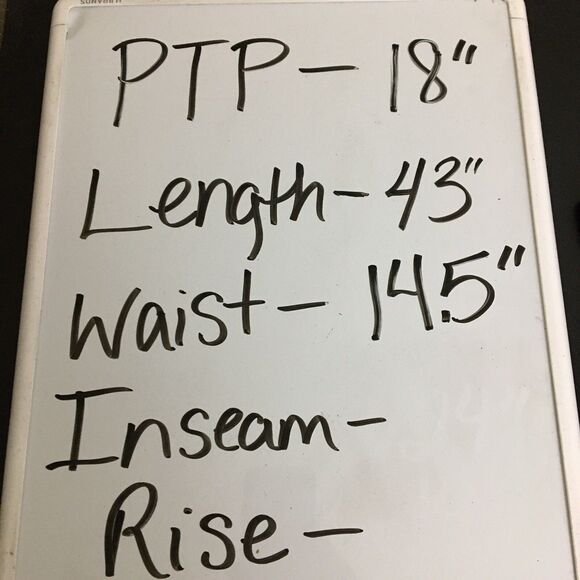 PTP - 18"
Length - 43"
Waist - 14.5"
Inseam -
Rise -